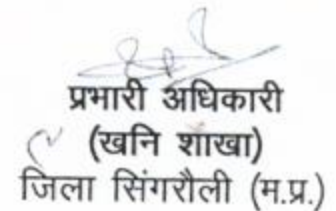 प्रभारी अधिकारी
(खनि शाखा)
जिला सिंगरौली (म.प्र.)